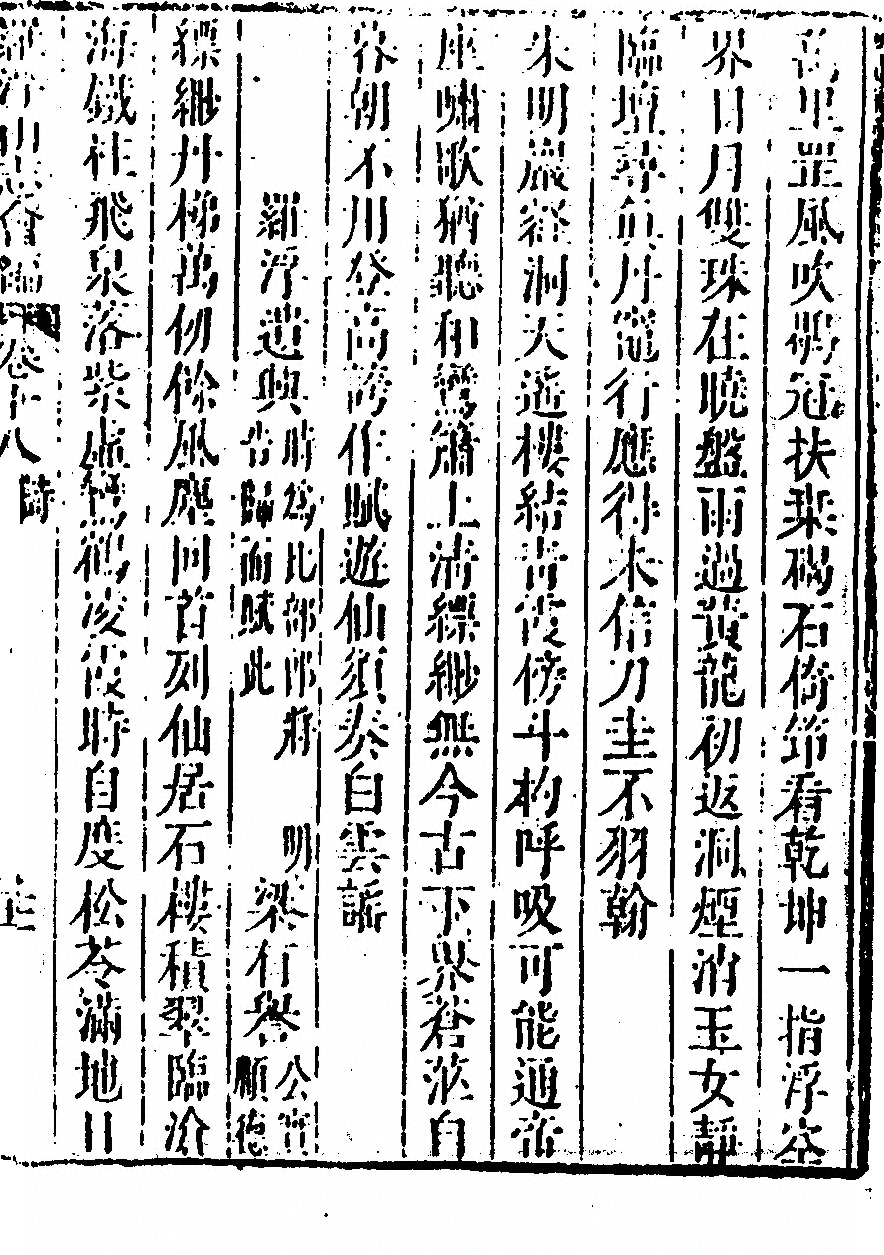 萬里罡風吹鶡冠扶桑碣石倚筇看乾坤一指浮空
界日月雙珠在曉盤雨過黃龍初返洞煙消玉女靜
臨壇尋眞丹竈行應得未信刀圭不羽翰
朱明巖經洞天遙樓結青霞傍斗杓呼吸可能通帝
座嘯歌猶聽和鸞簫上清縹緲無今古下界蒼茫自
暮朝不用登高誇作賦遊仙須奏白雲謡
羅浮遣興時爲比部郎將告歸而賦此 明梁有譽公實順德
縹緲丹梯萬仞餘風塵回首刻仙居石樓積翠臨滄
海鐵柱飛泉落紫虛鸞鶴凌霞時自度松苓滿地日
羅浮山志會編 卷十八 詩